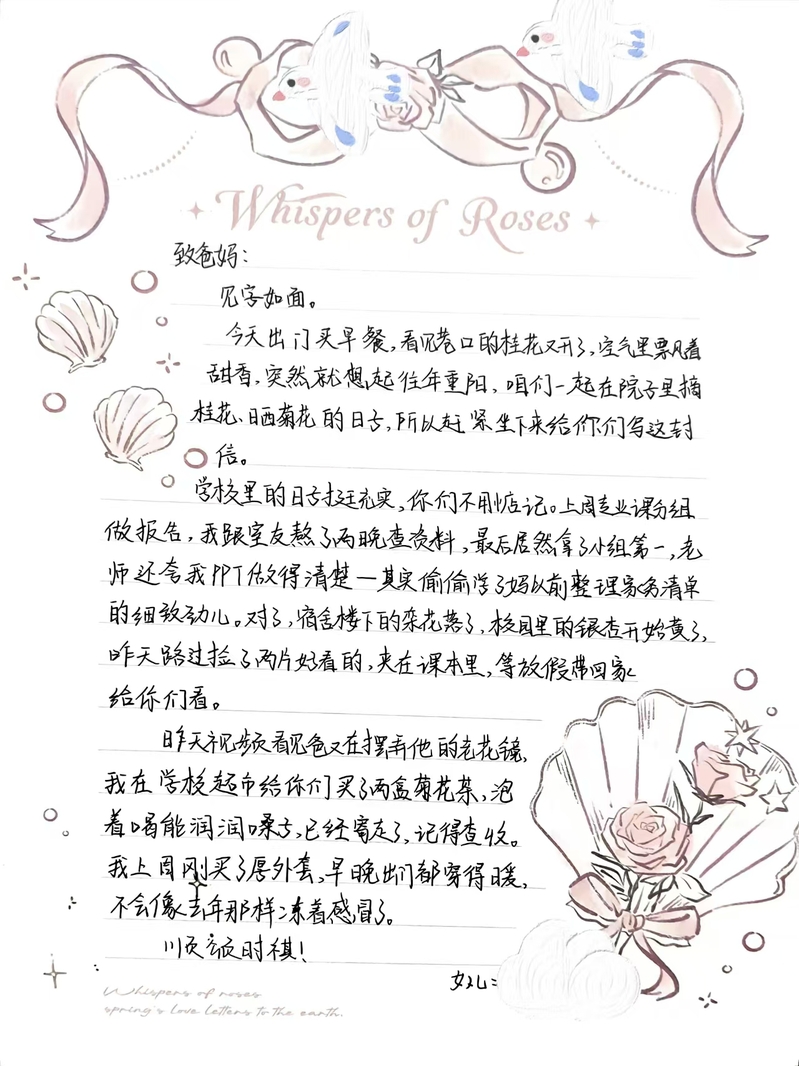 Whispers of Roses
致爸妈：
见字如面。
今天出门买早餐，看见巷口的桂花又开了，空气里飘着
甜香，突然就想起往年重阳，咱们一起在院子里摘
桂花、晒菊花的日子，所以赶紧坐下来给你们写这封
信。
学校里的日子挺充实，你们不用惦记。上周专业课分组
做报告，我跟室友熬了两晚查资料，最后居然拿了小组第一，老
师还夸我PPT做得清楚—其实偷偷学了妈以前整理家务清单
的细致劲儿。对了，宿舍楼下的栾花落了，校园里的银杏开始黄了，
昨天路过捡了两片好看的，夹在课本里，等放假带回家
给你们看。
昨天视频看见爸又在摆弄他的老花镜，
我在学校超市给你们买了两盒菊花茶，泡
着喝能润润嗓子，已经寄走了，记得查收。
我上周刚买了厚外套，早晚出门都穿得暖，
不会像去年那样冻着感冒了。
顺颂时祺！
女儿：
Whispers of roses
spring's love letters to the earth.